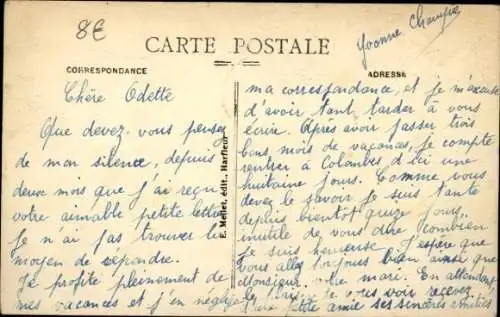 8€
Yvonne
CARTE POSTALE
CORRESPONDANCE
ADRESSE
Chère Odette
Que devez vous penser
de mon silence, depuis
deux mois que j'ai reçu
votre aimable petite lettre
Je n'ai pas trouver le
moyen de répondre.
Je profite pleinement de
mes vacances et j'en néglige
E. Mellet, édit., Harfleur
ma correspondance, et je m'excuse
d'avoir tant tarder à vous
écrire. Apres avoir passer trois
bons mois de vacances, je compte
rentrer à Colombes d'ici une
huitaine jours. Comme vous
devez le savoir je suis tante
depuis bientot quize jours,
inutile de vous dire combien
je suis heureuse. J'espère que
vous allez toujours bien ainsi que
Monsieur votre mari. En attendant
le de vous voir recevez
d'une petite amie ses sincères amitiés